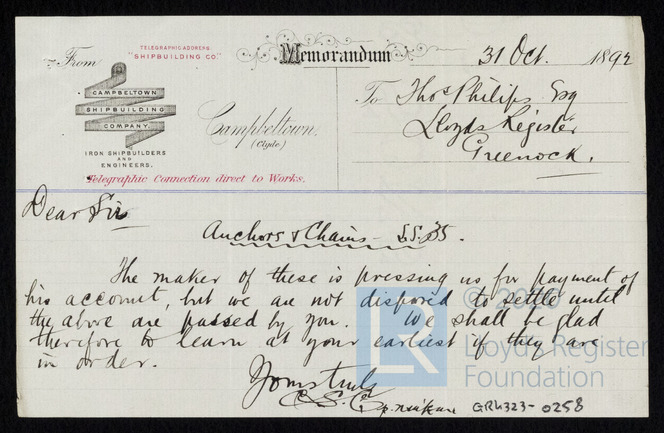 From
TELEGRAPHIC ADDRESS.
"SHIPBUILDING CO."
CAMPBELTOWN
SHIPBUILDING
COMPANY.
IRON SHIPBUILDERS
AND
ENGINEERS.
Telegraphic Connection direct to Works.
Memorandum
Campbeltown.
(Clyde)
31 Oct. 1892
To Thos Philips Esq
Lloyds Register
Greenock.
Dear Sir
Anchors & Chains - S.S. 35.
The maker of these is pressing us for payment of
his account, but we are not disposed to settle until
the above are passed by you. We shall be glad
therefore to learn at your earliest if they are
in order.
Yours truly
C.S.Co
GRK323-0258
Lloyd's Register
Foundation